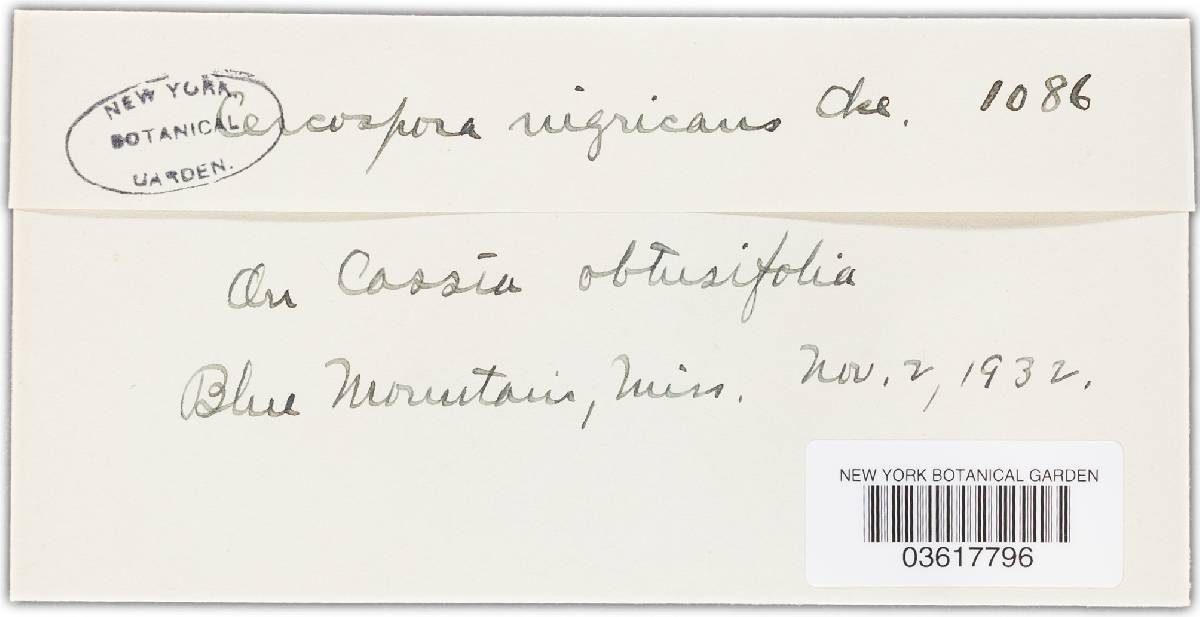 NEW YORK
BOTANICAL
GARDEN.
Cercospora nigricans Cke. 1086
On Cassia obtusifolia
Blue Mountain, Miss. Nov. 2, 1932.
NEW YORK BOTANICAL GARDEN
03617796